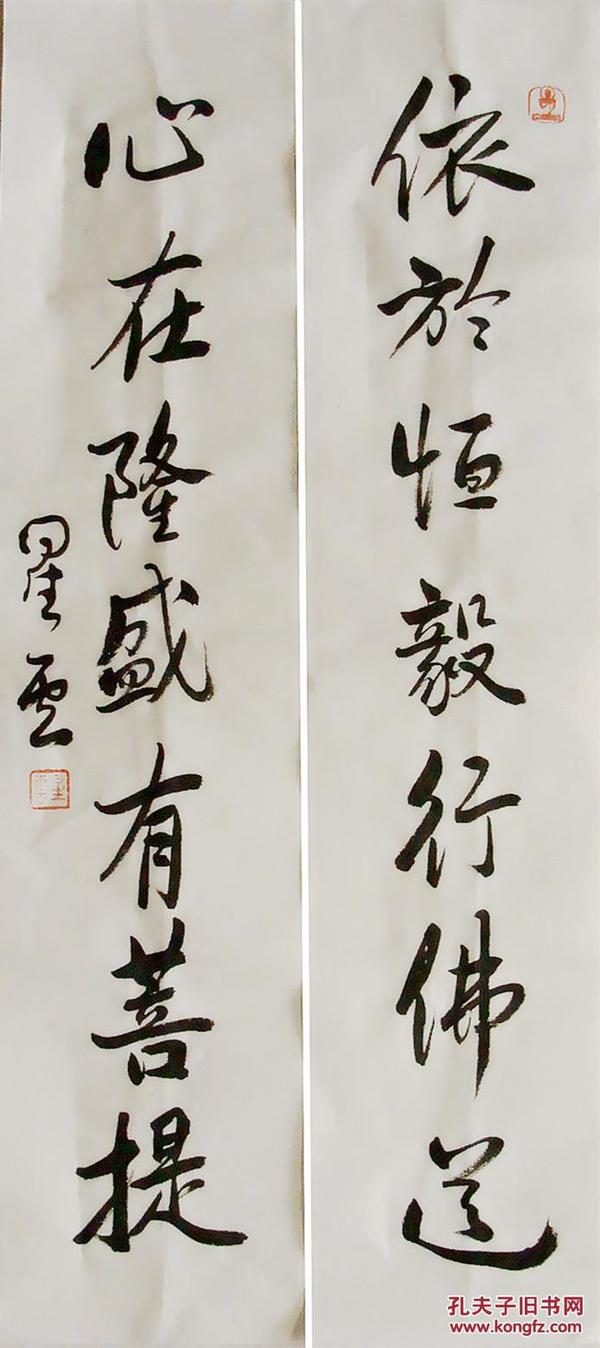 依於恒毅行佛道
心在隆盛有菩提
星雲
孔夫子旧书网
www.kongfz.com